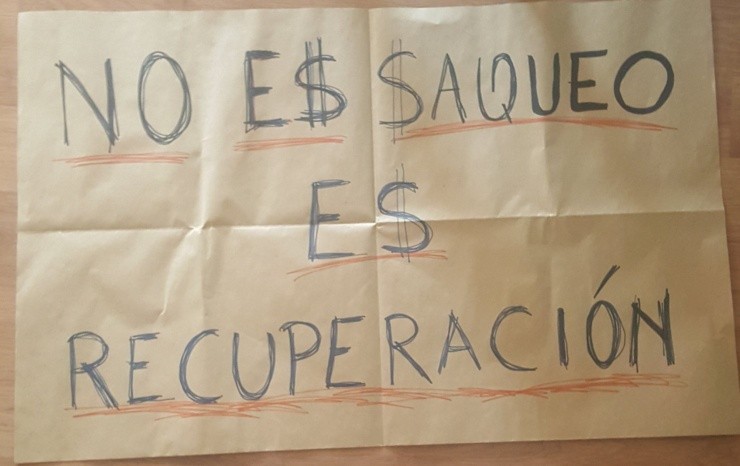 NO E$ $AQUEO
E$
RECUPERACIÓN